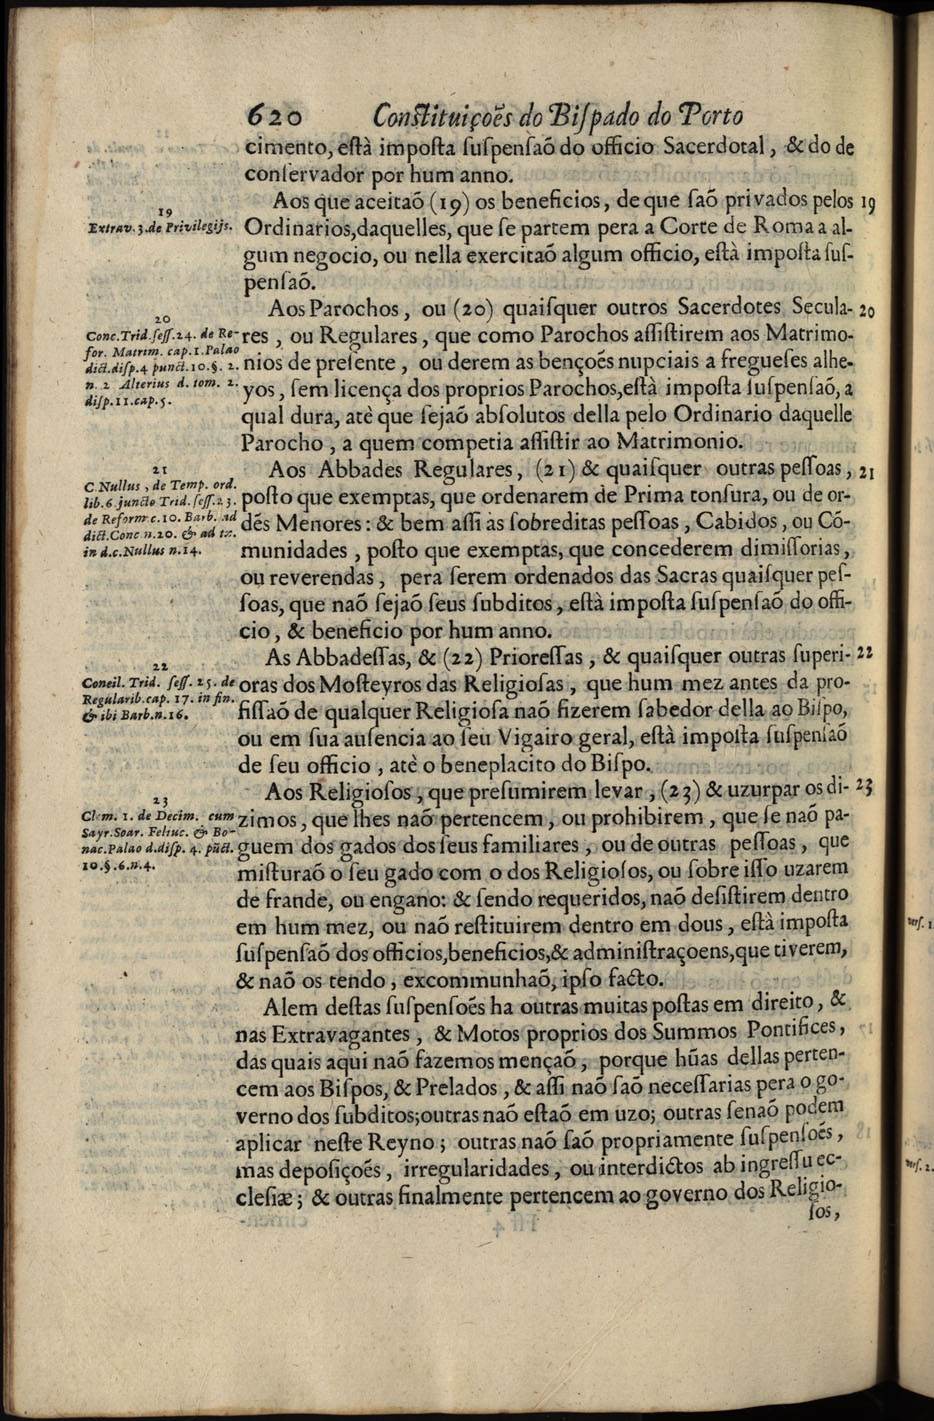 620 Conſtituiçoẽs do Biſpado do Porto
cimento, eſtà impoſta ſuſpenſaõ do officio Sacerdotal, & do de
conſervador por hum anno.
Aos que aceitaõ (19) os beneficios, de que ſaõ privados pelos 19
Ordinarios,daquelles, que ſe partem pera a Corte de Roma a al-
gum negocio, ou nella exercitaõ algum officio, eſtà impoſta ſuſ-
penſaõ.
19
Extrav. 3.de Privilegijs.
Aos Parochos, ou (20) quaiſquer outros Sacerdotes Secula- 20
res, ou Regulares, que como Parochos aſſiſtirem aos Matrimo-
nios de preſente, ou derem as bençoẽs nupciais a fregueſes alhe-
yos, ſem licença dos proprios Parochos,eſtà impoſta ſuſpenſaõ, a
qual dura, atè que ſejaõ abſolutos della pelo Ordinario daquelle
Parocho, a quem competia aſſiſtir ao Matrimonio.
20
Conc.Trid.ſeſſ.24. de Re-
for. Matrim. cap.1.Palao
dict.diſp.4 punct.10.§. 2.
n. 2 Alterius d. tom. 2.
diſp.11.cap.5.
Aos Abbades Regulares, (21) & quaiſquer outras peſſoas, 21
poſto que exemptas, que ordenarem de Prima tonſura, ou de or-
dẽs Menores: & bem aſſi às ſobreditas peſſoas, Cabidos, ou Cõ-
munidades, poſto que exemptas, que concederem dimiſſorias,
ou reverendas, pera ſerem ordenados das Sacras quaiſquer peſ-
ſoas, que naõ ſejaõ ſeus ſubditos, eſtà impoſta ſuſpenſaõ do offi-
cio, & beneficio por hum anno.
21
C.Nullus, de Temp. ord.
lib.6.juncto Trid.ſeſſ.23.
de Reform c.10. Barb. ad
dict.Conc n.20. & ad tx.
in d.c.Nullus n.14.
As Abbadeſſas, & (22) Prioreſſas, & quaiſquer outras ſuperi- 22
oras dos Moſteyros das Religioſas, que hum mez antes da pro-
fiſſaõ de qualquer Religioſa naõ fizerem ſabedor della ao Biſpo,
ou em ſua auſencia ao ſeu Vigairo geral, eſtà impoſta ſuſpenſaõ
de ſeu officio, atè o beneplacito do Biſpo.
22
Concil. Trid. ſeſſ. 25. de
Regularib.cap. 17. in fin.
& ibi Barb.n.16.
Aos Religioſos, que preſumirem levar, (23) & uzurpar os di- 23
zimos, que lhes naõ pertencem, ou prohibirem, que ſe naõ pa-
guem dos gados dos ſeus familiares, ou de outras peſſoas, que
miſturaõ o ſeu gado com o dos Religioſos, ou ſobre iſſo uzarem
de frande, ou engano: & ſendo requeridos, naõ deſiſtirem dentro
em hum mez, ou naõ reſtituirem dentro em dous, eſtà impoſta
ſuſpenſaõ dos officios,beneficios,& adminiſtraçoens,que tiverem,
& naõ os tendo, excommunhaõ, ipſo facto.
23
Clem. 1. de Decim. cum
Sayr.Soar. Feliuc. & Bo-
nac.Palao d.diſp. 4. pũct.
10.§.6.n.4.
Alem deſtas ſuſpenſoẽs ha outras muitas poſtas em direito, &
nas Extravagantes, & Motos proprios dos Summos Pontifices,
das quais aqui naõ fazemos mençaõ, porque hũas dellas perten-
cem aos Biſpos, & Prelados, & aſſi naõ ſaõ neceſſarias pera o go-
verno dos ſubditos;outras naõ eſtaõ em uzo; outras ſenaõ podem
aplicar neſte Reyno; outras naõ ſaõ propriamente ſuſpenſoẽs,
mas depoſiçoẽs, irregularidades, ou interdictos ab ingreſſu ec-
cleſiæ; & outras finalmente pertencem ao governo dos Religio-
ſos,
verſ. 1.
verſ. 2.